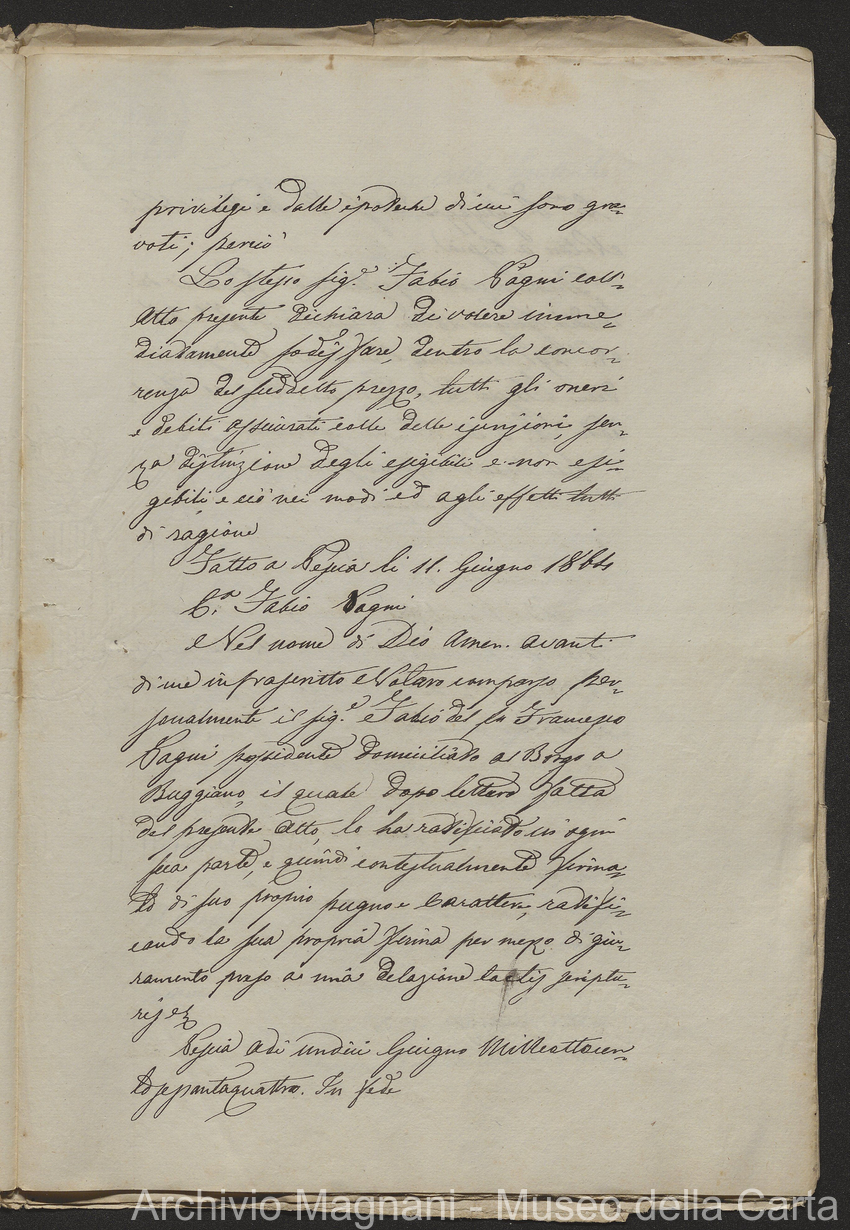 privilegi e dalle ipoteche di cui sono gra-
vati; perciò
Lo stesso Sig.e Fabio Pagni coll'
Atto presente dichiara di volere imme-
diatamente sodisfare, dentro la concor-
renza del suddetto prezzo, tutti gli oneri
e debiti assicurati colle dette iscrizioni, sen-
za distinzione degli esigibili e non esi-
gibili e ciò nei modi ed agli effetti tutti
di ragione
Fatto a Pescia li 11. Giugno 1864
C.a Fabio Pagni
Nel nome di Dio Amen. avanti
di me infrascritto Notaro comparso per-
sonalmente il Sig.e Fabio del fu Francesco
Pagni possidente domiciliato al Borgo a
Buggiano, il quale dopo lettura fatta
del presente Atto, lo ha ratificato in ogni
sua parte, e quindi contestualmente firma-
to di suo proprio pugno e Carattere, ratifi-
cando la sua propria firma per mezzo di giu-
ramento preso a mia delazione tactis scriptu-
ris
Pescia adì undici Giugno Milleottocen-
tosessantaquattro. In fede
Archivio Magnani - Museo della Carta